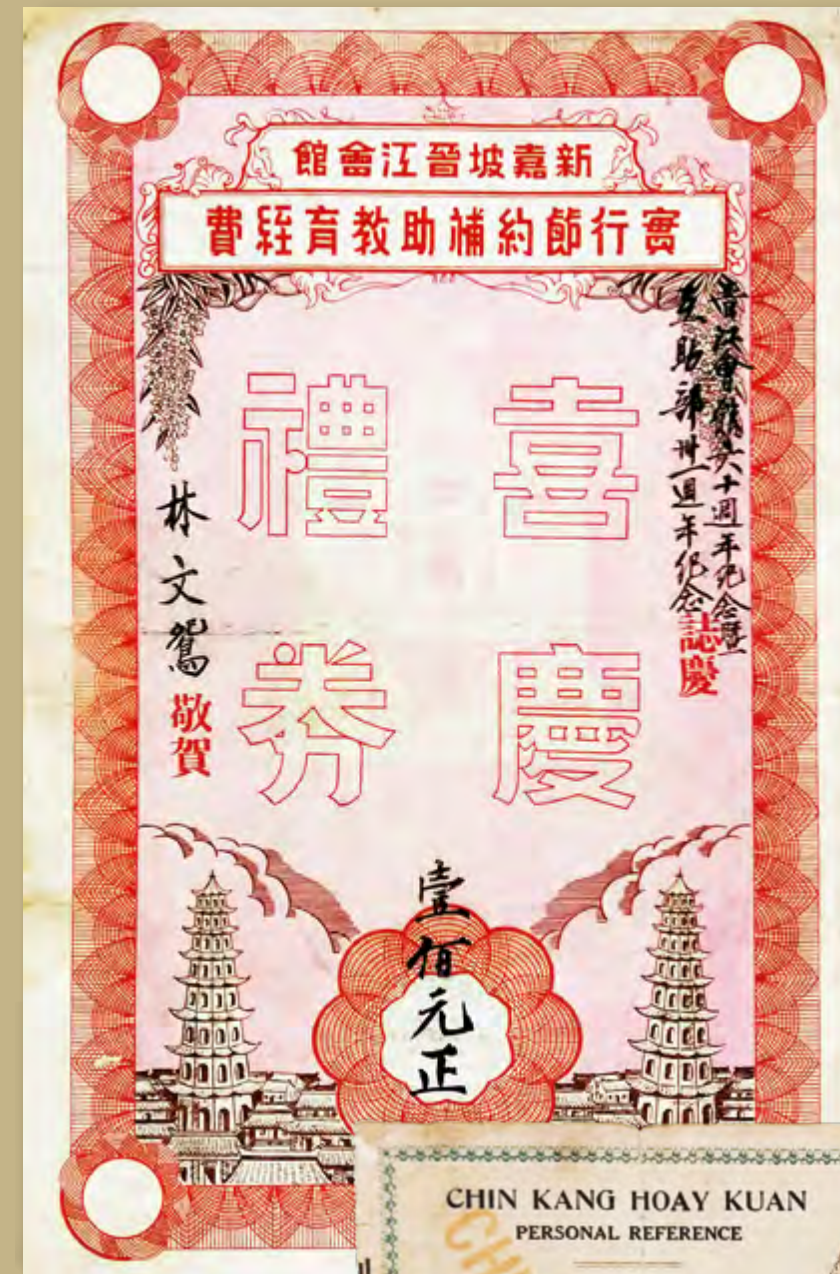 新嘉坡晉江會館
實行節約補助教育經費
晉江會館六十週年紀念暨
互助部卅一週年紀念誌慶
喜慶
禮券
林文鴛敬賀
壹佰元正
CHIN KANG HOAY KUAN
PERSONAL REFERENCE